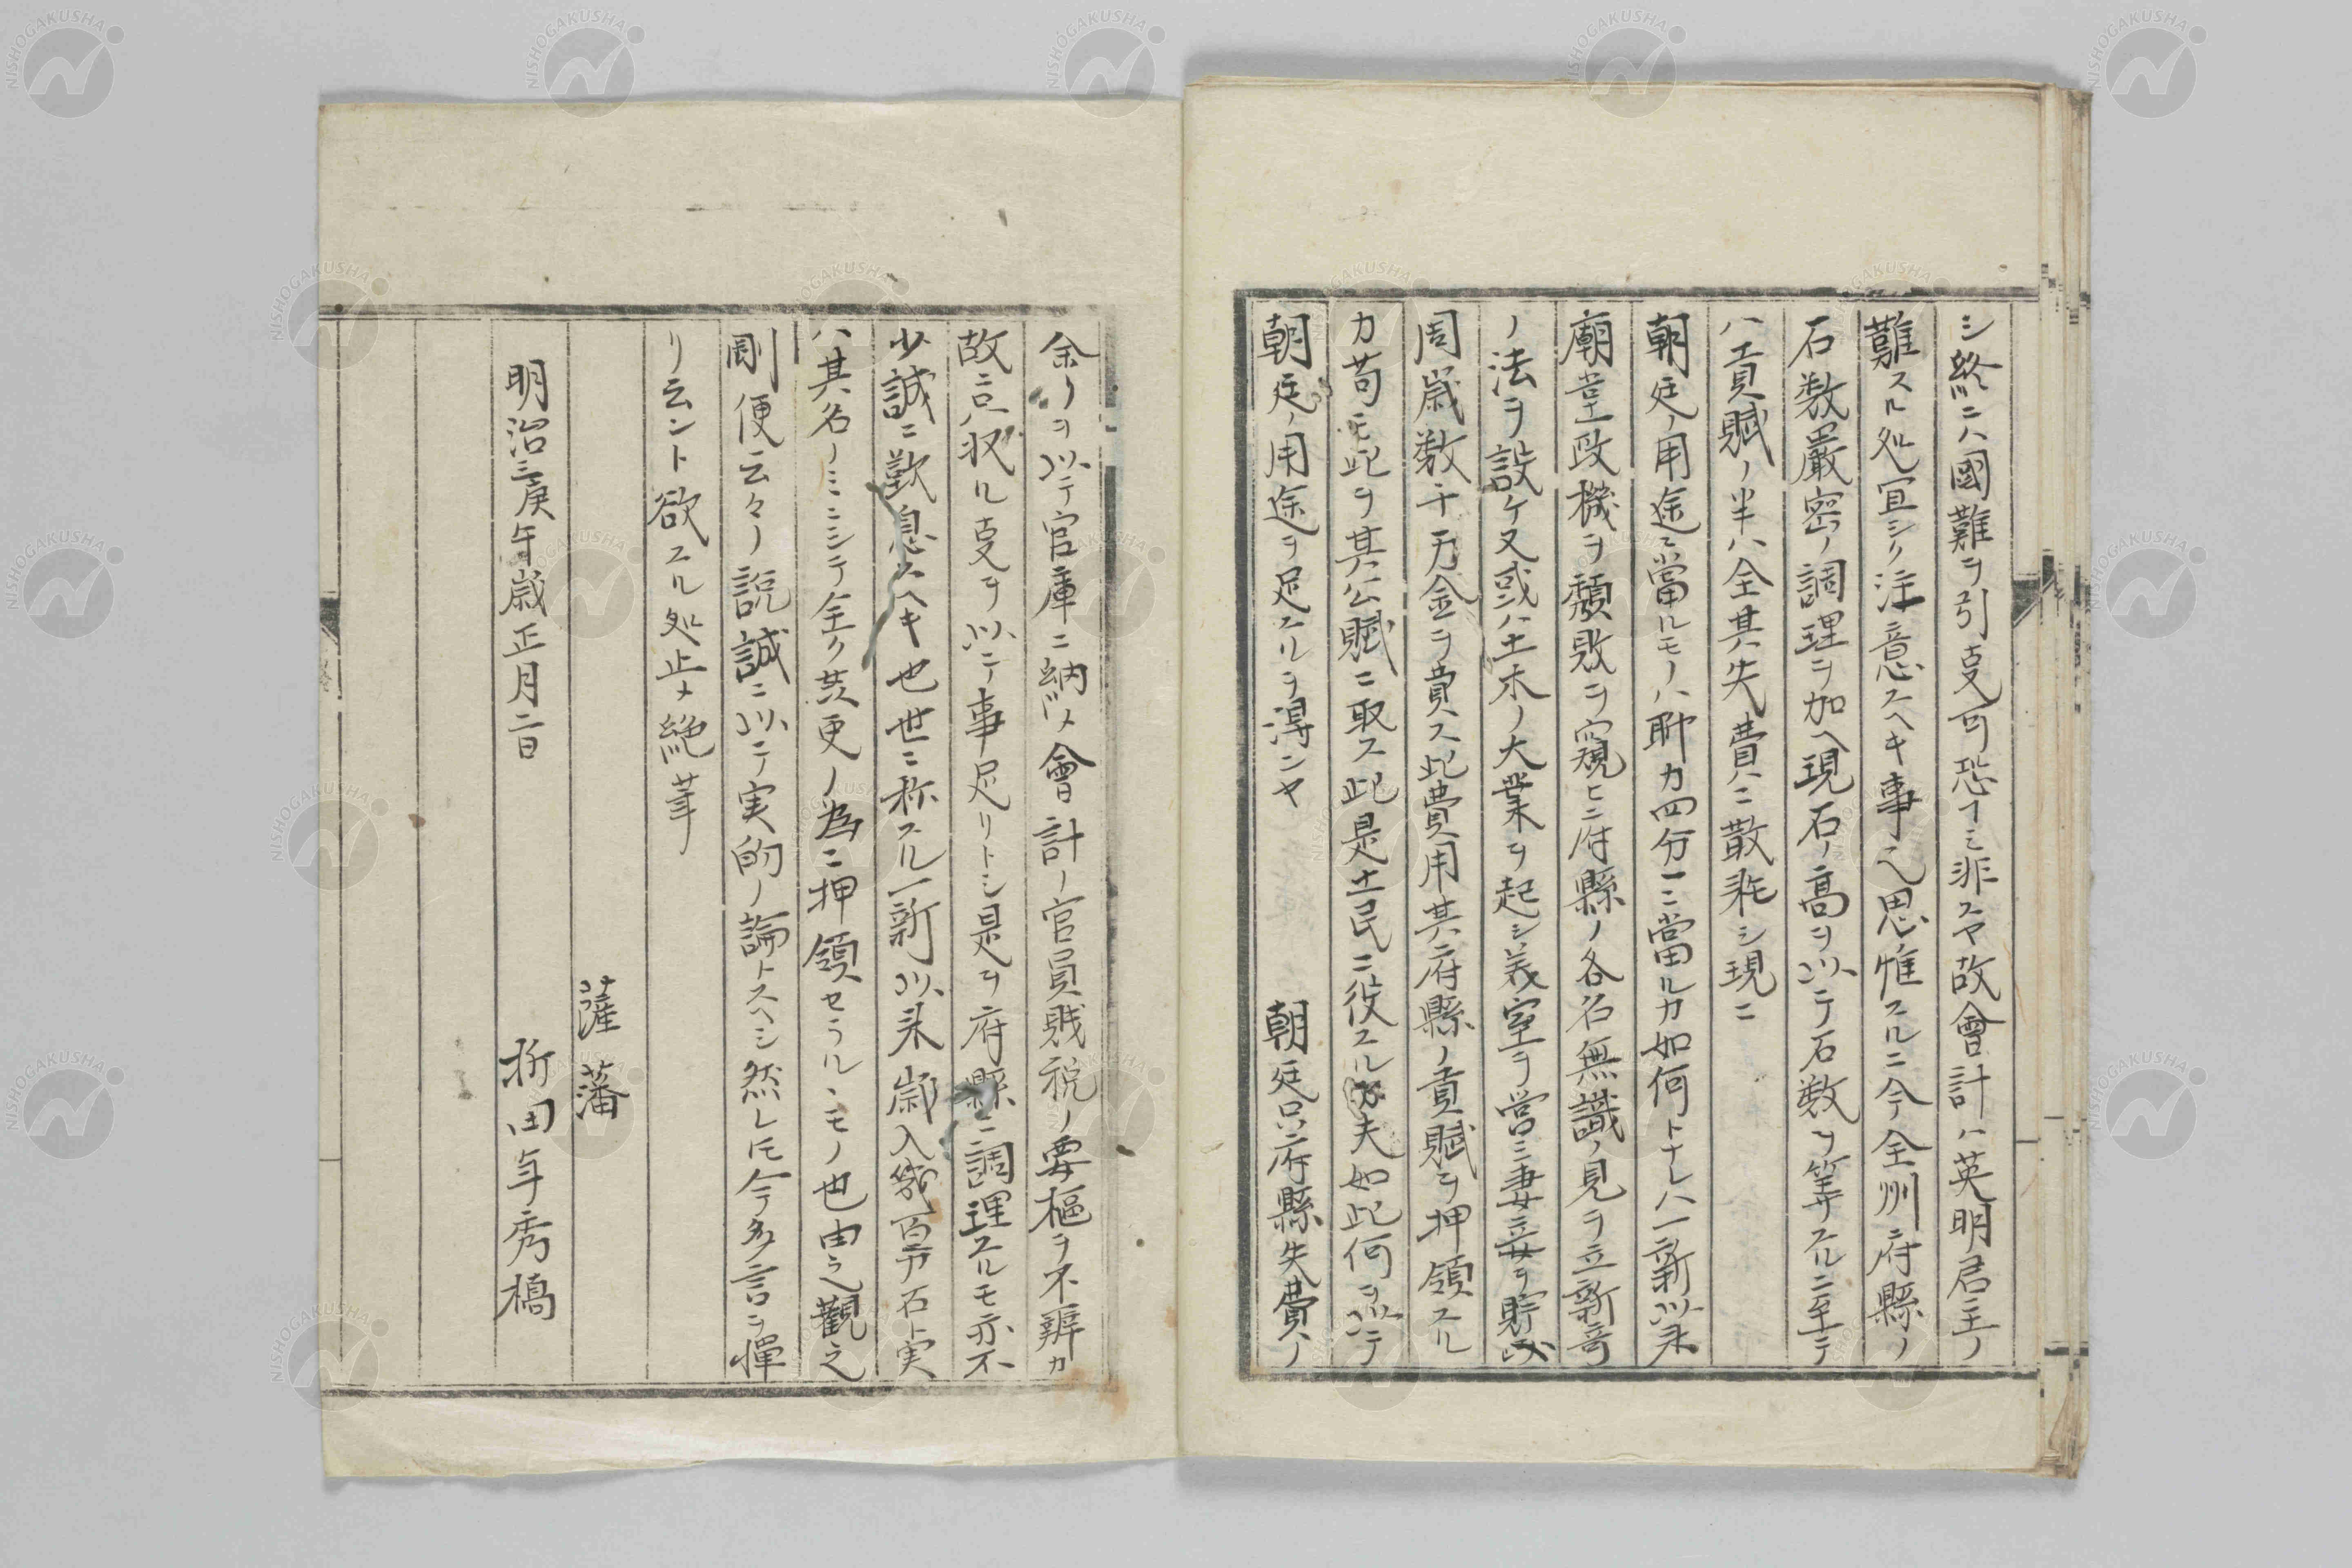 シ終ニハ國難ヲ引㕝可恐イミ非スヤ故會計ハ英明君主ノ
難スル処宜シク注意スヘキ事也思惟スルニ今全州府縣ノ
石数嚴密ノ調理ヲ加ヘ現石ノ高ヲ以テ石数ヲ算スルニ至テ
ハ貢賦ノ半ハ全其失費ニ散耗シ現ニ
朝廷ノ用途ニ當ルモノハ聊カ四分一ニ當ルカ如何トナレハ一新以来
廟堂政機ヲ頽敗ヲ窺ヒニ府縣ノ各名無識ノ見ヲ立新奇
ノ法ヲ設ケ又或ハ土木ノ大業ヲ起シ義室ヲ営ミ妻妾ヲ貯
周歳数十万金ヲ費ス此費用其府縣ノ貢賦ヲ押領スル
カ苟モ此ヲ其公賦ニ取ス此是土民ニ役スル夫如此何ヲ以テ
朝廷ノ用途ヲ足スルヲ淂ンヤ 朝廷只府縣失費ノ
余リヲ以テ官庫ニ納メ會計ノ官員賎税ノ要樞ヲ不辨カ
故ニ只収ル㕝ヲ以テ事足リトシ是ヲ府縣ニ調理スルモ亦不
少誠ニ歎息スヘキ也世ニ称スル一新以来歳入幾百万石ト実
ハ其名ノミニシテ全ク其更ノ為ニ押領セラルヽモノ也由之觀之
剛便云々ノ説誠ニ以テ実的ノ論トスヘシ然レ𪜈今多言ヲ憚
リ云ント欲スル処止メ絶筆
薩藩
明治三庚午歳正月二日 折田年秀橋
NISHOGAKUSHA